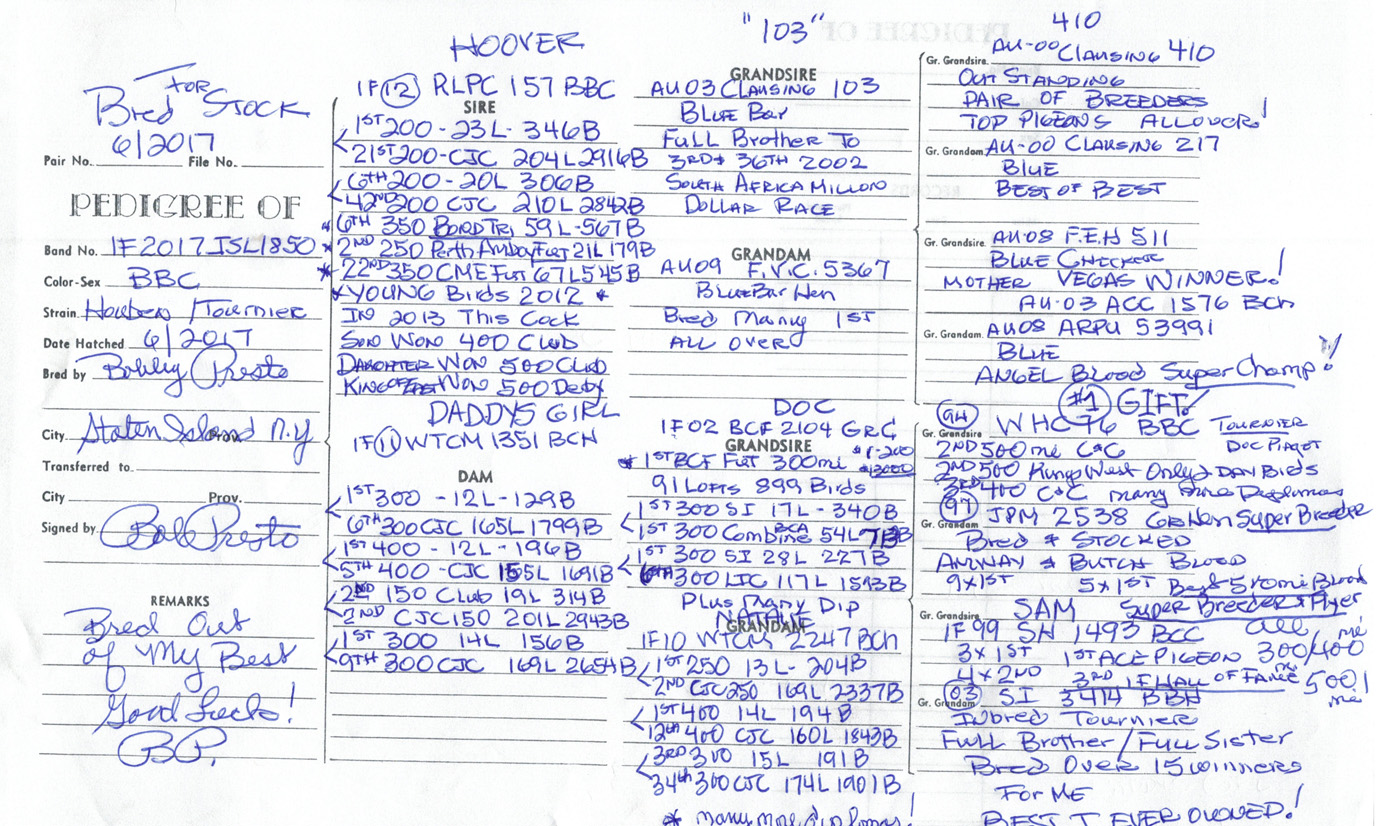 For
Bred Stock
6/2017
Pair No. File No.
PEDIGREE OF
Band No. IF2017JSL1850
Color-Sex BBC
Strain Houben/Tournier
Date Hatched 6/2017
Bred by Bobby Presto
City Staten Island N.Y
Transferred to
City Prov.
Signed by Bob Presto
REMARKS
Bred Out
of My Best
Good Luck!
B.P.
HOOVER
IF 12 RLPC 157 BBC
SIRE
1ST 200 - 23L - 346B
21ST 200 - CJC 204L 2916B
6TH 200 - 20L 306B
42ND 200 CJC 210L 2842B
* 6TH 350 Bord Tri 59L - 567B
* 2ND 250 Perth Amboy Fut 21L 179B
* 22ND 350 CME Fut 67L 545B
* YOUNG Birds 2012 *
IN 2013 This Cock
Son Won 400 Club
DAUGHTER WON 500 Club
KING WON 500 Derby
DADDYS GIRL
IF 11 WTCM 1351 BCN
DAM
1ST 300 - 12L - 129B
6TH 300 CJC 165L 1799B
1ST 400 - 12L - 196B
5TH 400 - CJC 155L 1691B
2ND 150 Club 19L 314B
2ND CJC 150 201L 2943B
1ST 300 14L 156B
9TH 300 CJC 169L 2654B
"103"
GRANDSIRE
AU 03 Clausing 103
Blue Bar
Full Brother To
3RD & 36TH 2002
South Africa Million
Dollar Race
GRANDAM
AU09 F.V.C. 5367
Blue Bar Hen
Bred Many 1ST
ALL OVER
DOC
IF 02 BCF 2104 GRC
GRANDSIRE
* 1ST BCF Fut 300mi
91 Lofts 899 Birds
1ST 300 SI 17L - 340B
1ST 300 Combine BCA 54L
1ST 300 SI 28L 227B
6TH 300 LIC 117L 1593B
Plus Many Dip
GRANDAM
IF10 WTCM 2247 BCN
1ST 250 13L - 204B
2ND CJC 250 169L 2337B
1ST 400 14L 194B
12th 400 CJC 160L 1843B
3RD 300 15L 191B
34th 300 CJC 174L 1901B
* many more diplomas!
410
Gr. Grandsire AU-00 Clausing 410
Out Standing
PAIR OF BREEDERS
TOP PIGEONS ALLOVER!
Gr. Grandam AU-00 Clausing 217
BLUE
BEST OF BEST
Gr. Grandsire AU-08 F.E.H 511
BLUE CHECKER
MOTHER VEGAS WINNER!
AU-03 ACC 1576 BCH
Gr. Grandam AU08 ARPU 53991
BLUE
ANGEL Blood Super Champ!
#1 GIFT!
Gr. Grandsire 94 WHC 76 BBC Tournier
2ND 500mi C&C Doc Piaget
2ND 500 Kings West Only 2 DAY Birds
3RD 400 C&C many more Diplomas
Gr. Grandam 97 JPM 2538 Hen Super Breeder
Bred & STOCKED
ANWAY & BUTCH BLOOD
9x1ST 5x1ST Best 510mi Blood
Gr. Grandsire SAM Super Breeder & Flyer
IF 99 SH 1493 BCC all
3x1ST 1ST ACE PIGEON 300/400 mi
4x2ND 3RD IF HALL OF FAME 500 mi!
Gr. Grandam 03 SI 3414 BBH
Inbred Tournier
Full Brother/Full Sister
Bred Over 15 winners
For ME
BEST I EVER OWNED!